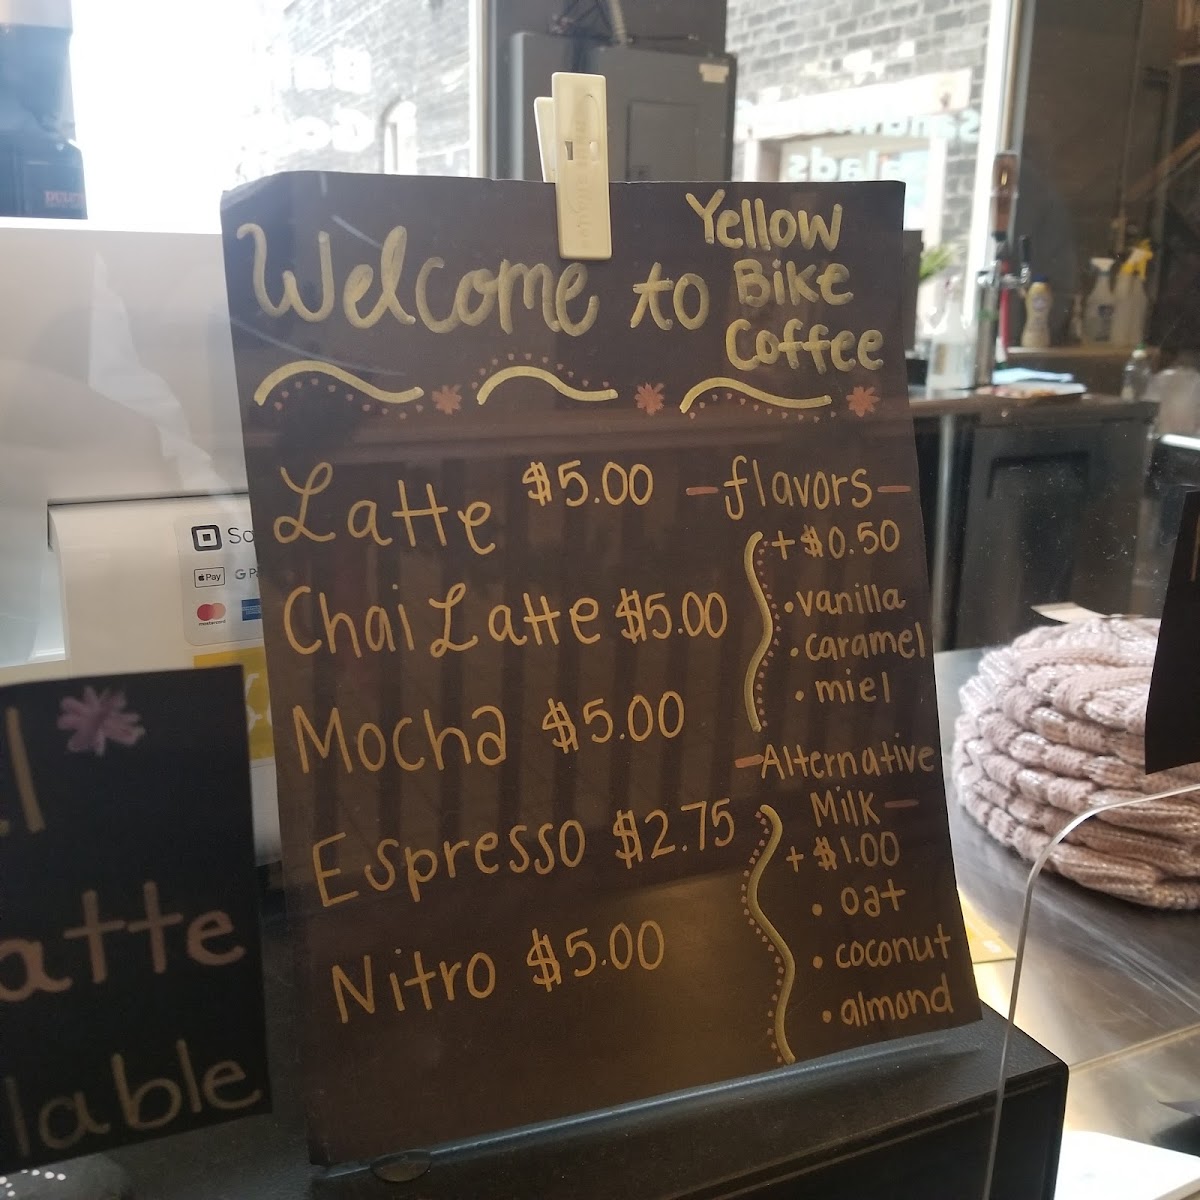 Welcome to Yellow
Bike
Coffee
Latte $5.00
Chai Latte $5.00
Mocha $5.00
Espresso $2.75
Nitro $5.00
flavors
+ $0.50
• vanilla
• caramel
• miel
Alternative
Milk
+ $1.00
• oat
• coconut
• almond
Pay
G P
mastercard
atte
lable
alads